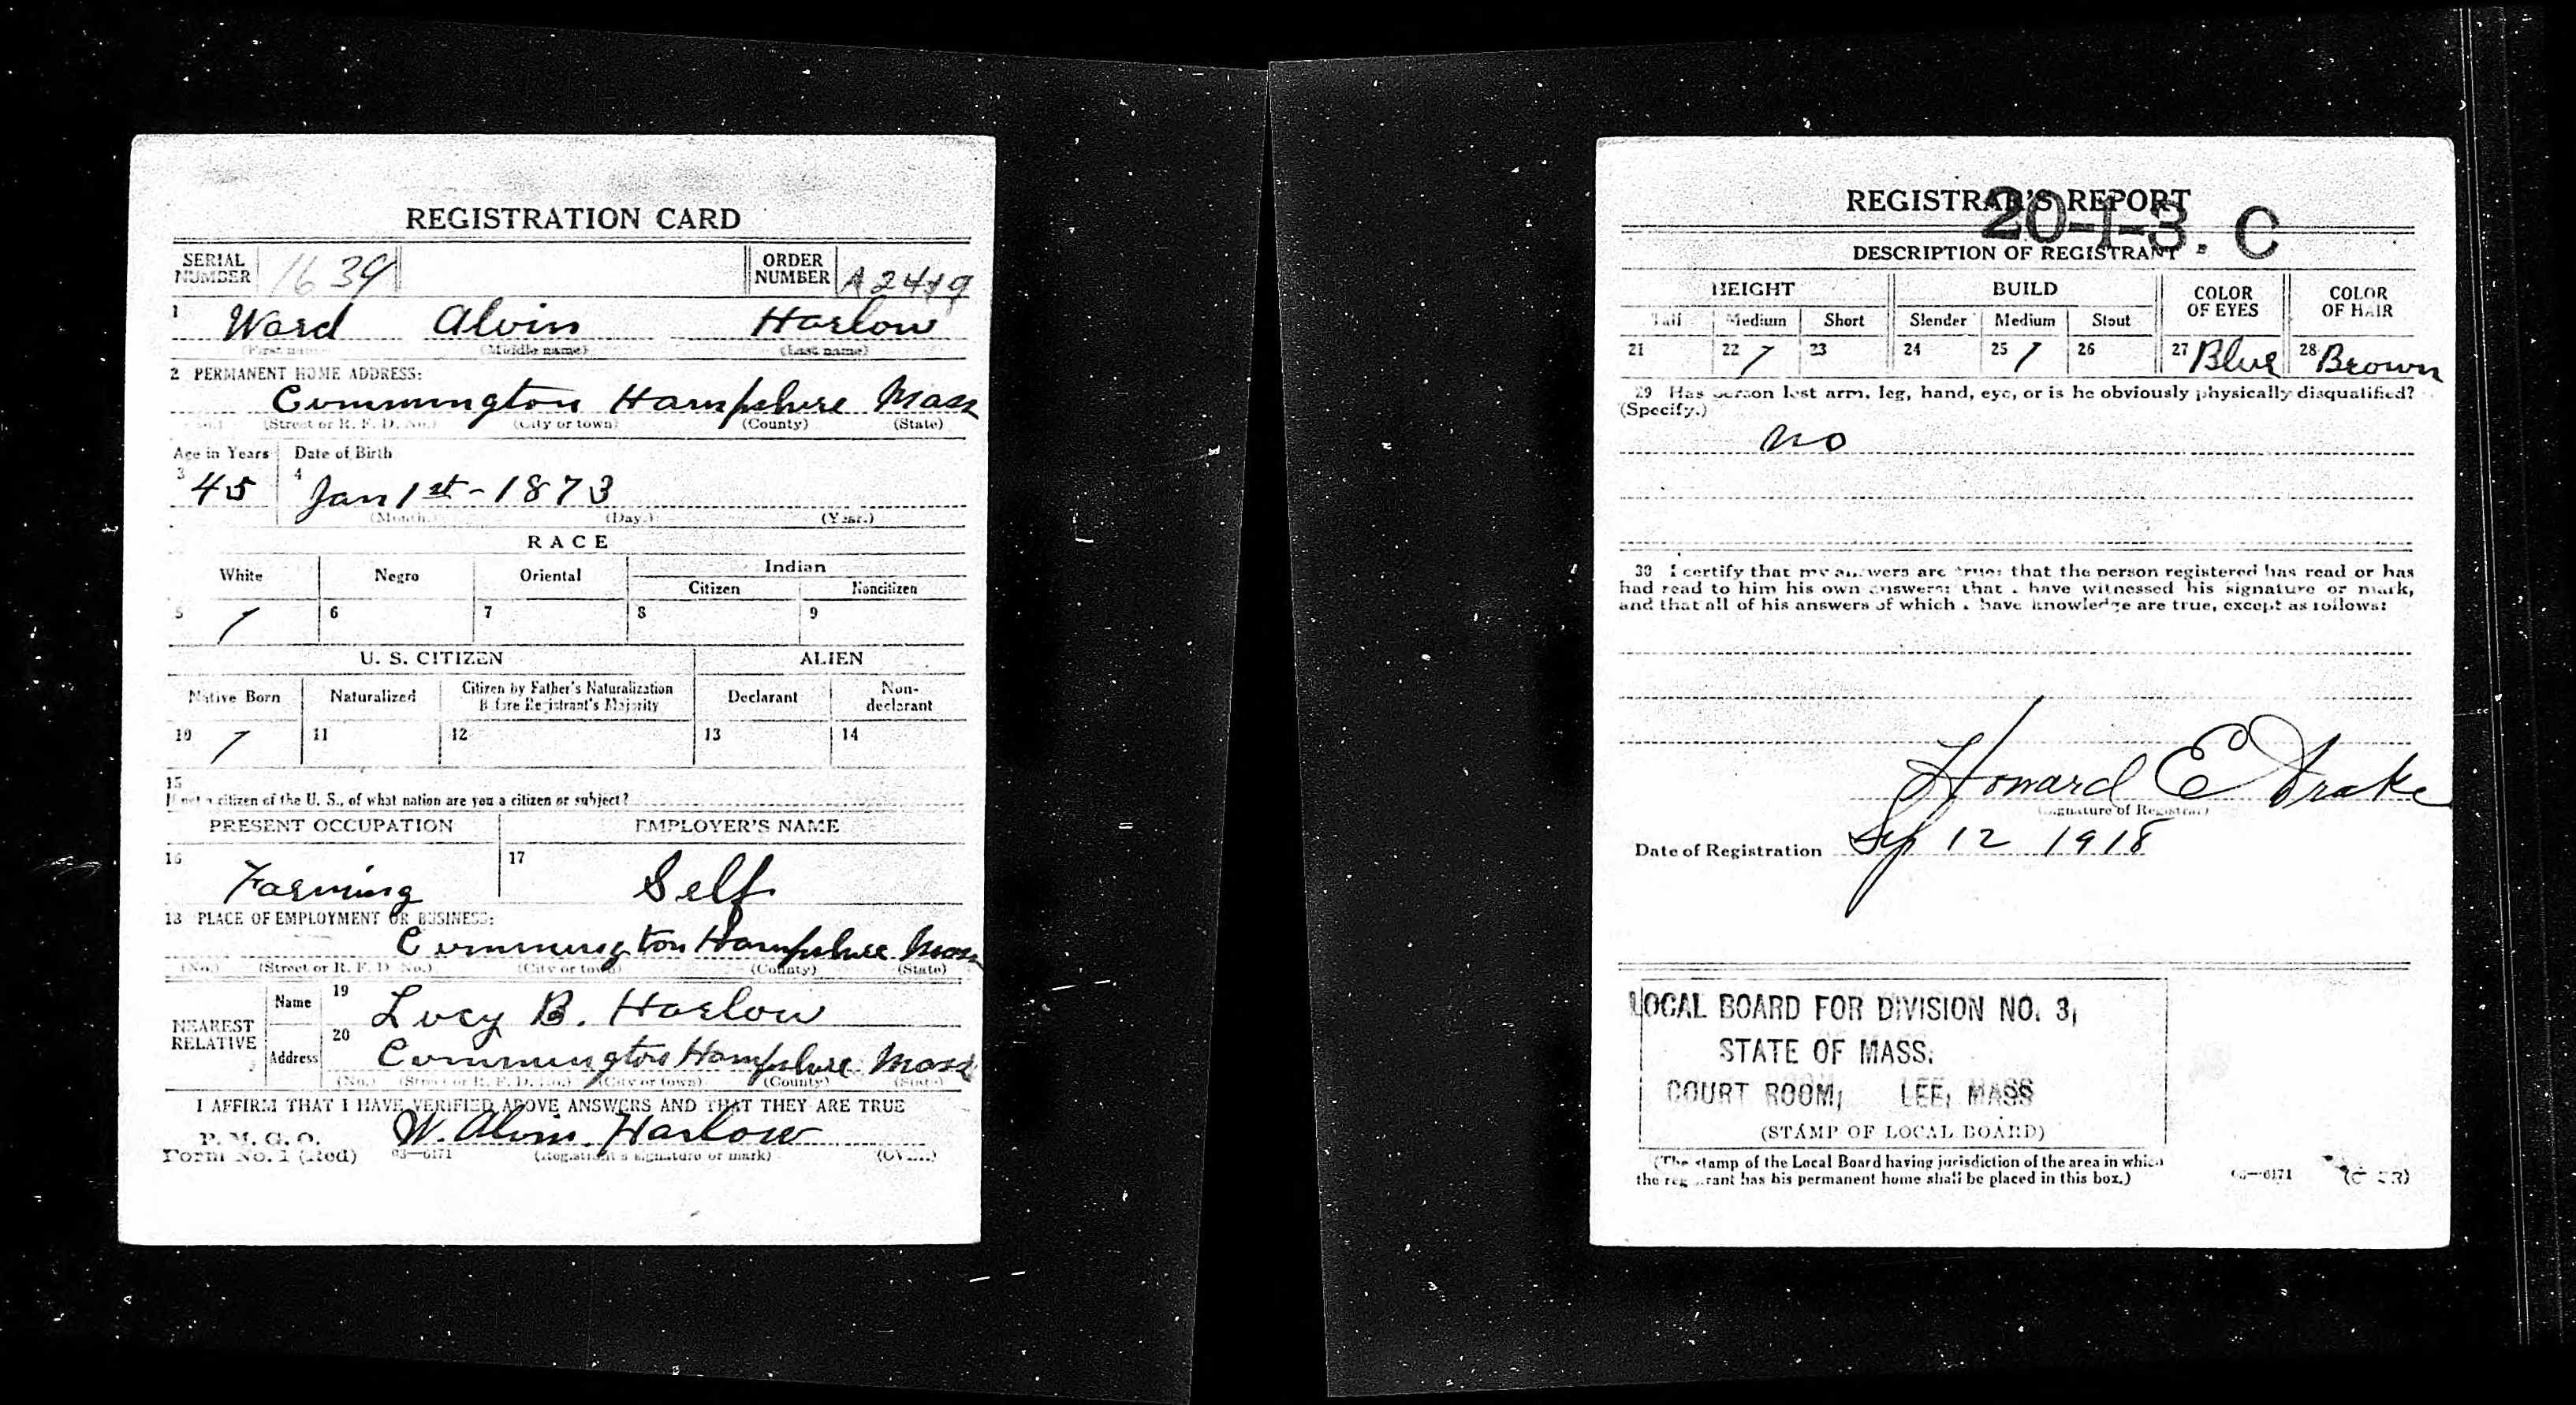 REGISTRATION CARD
SERIAL NUMBER 1639 ORDER NUMBER A2449
1 Ward Alvin Harlow
(First name) (Middle name) (Last name)
2 PERMANENT HOME ADDRESS:
Cummington Hampshire Mass
(No.) (Street or R. F. D. No.) (City or town) (County) (State)
Age in Years Date of Birth
3 45 4 Jan 1st - 1873
(Month.) (Day.) (Year.)
RACE
White Negro Oriental Indian
Citizen Noncitizen
5 / 6 7 8 9
U. S. CITIZEN ALIEN
Native Born Naturalized Citizen by Father's Naturalization Before Registrant's Majority Declarant Non-declarant
10 / 11 12 13 14
15
If not a citizen of the U. S., of what nation are you a citizen or subject?
PRESENT OCCUPATION EMPLOYER'S NAME
16 Farming 17 Self
18 PLACE OF EMPLOYMENT OR BUSINESS:
Cummington Hampshire Mass
(No.) (Street or R. F. D. No.) (City or town) (County) (State)
NEAREST RELATIVE
Name 19 Lucy B. Harlow
Address 20 Cummington Hampshire Mass
(No.) (Street or R. F. D. No.) (City or town) (County) (State)
I AFFIRM THAT I HAVE VERIFIED ABOVE ANSWERS AND THAT THEY ARE TRUE
P. M. G. O.
Form No. 1 (Red) 03—6171 W. Alvin Harlow
(Registrant's signature or mark) (OVER)
REGISTRAR'S REPORT
20-1-3. C
DESCRIPTION OF REGISTRANT
HEIGHT BUILD COLOR OF EYES COLOR OF HAIR
Tall Medium Short Slender Medium Stout
21 22 / 23 24 25 / 26 27 Blue 28 Brown
29 Has person lost arm, leg, hand, eye, or is he obviously physically disqualified?
(Specify.)
no
30 I certify that my answers are true; that the person registered has read or has
had read to him his own answers; that I have witnessed his signature or mark,
and that all of his answers of which I have knowledge are true, except as follows:
Howard E Drake
(Signature of Registrar)
Date of Registration Sep 12 1918
LOCAL BOARD FOR DIVISION NO. 3,
STATE OF MASS.
COURT ROOM, LEE, MASS
(STAMP OF LOCAL BOARD)
(The stamp of the Local Board having jurisdiction of the area in which
the registrant has his permanent home shall be placed in this box.)
03—6171 (OVER)